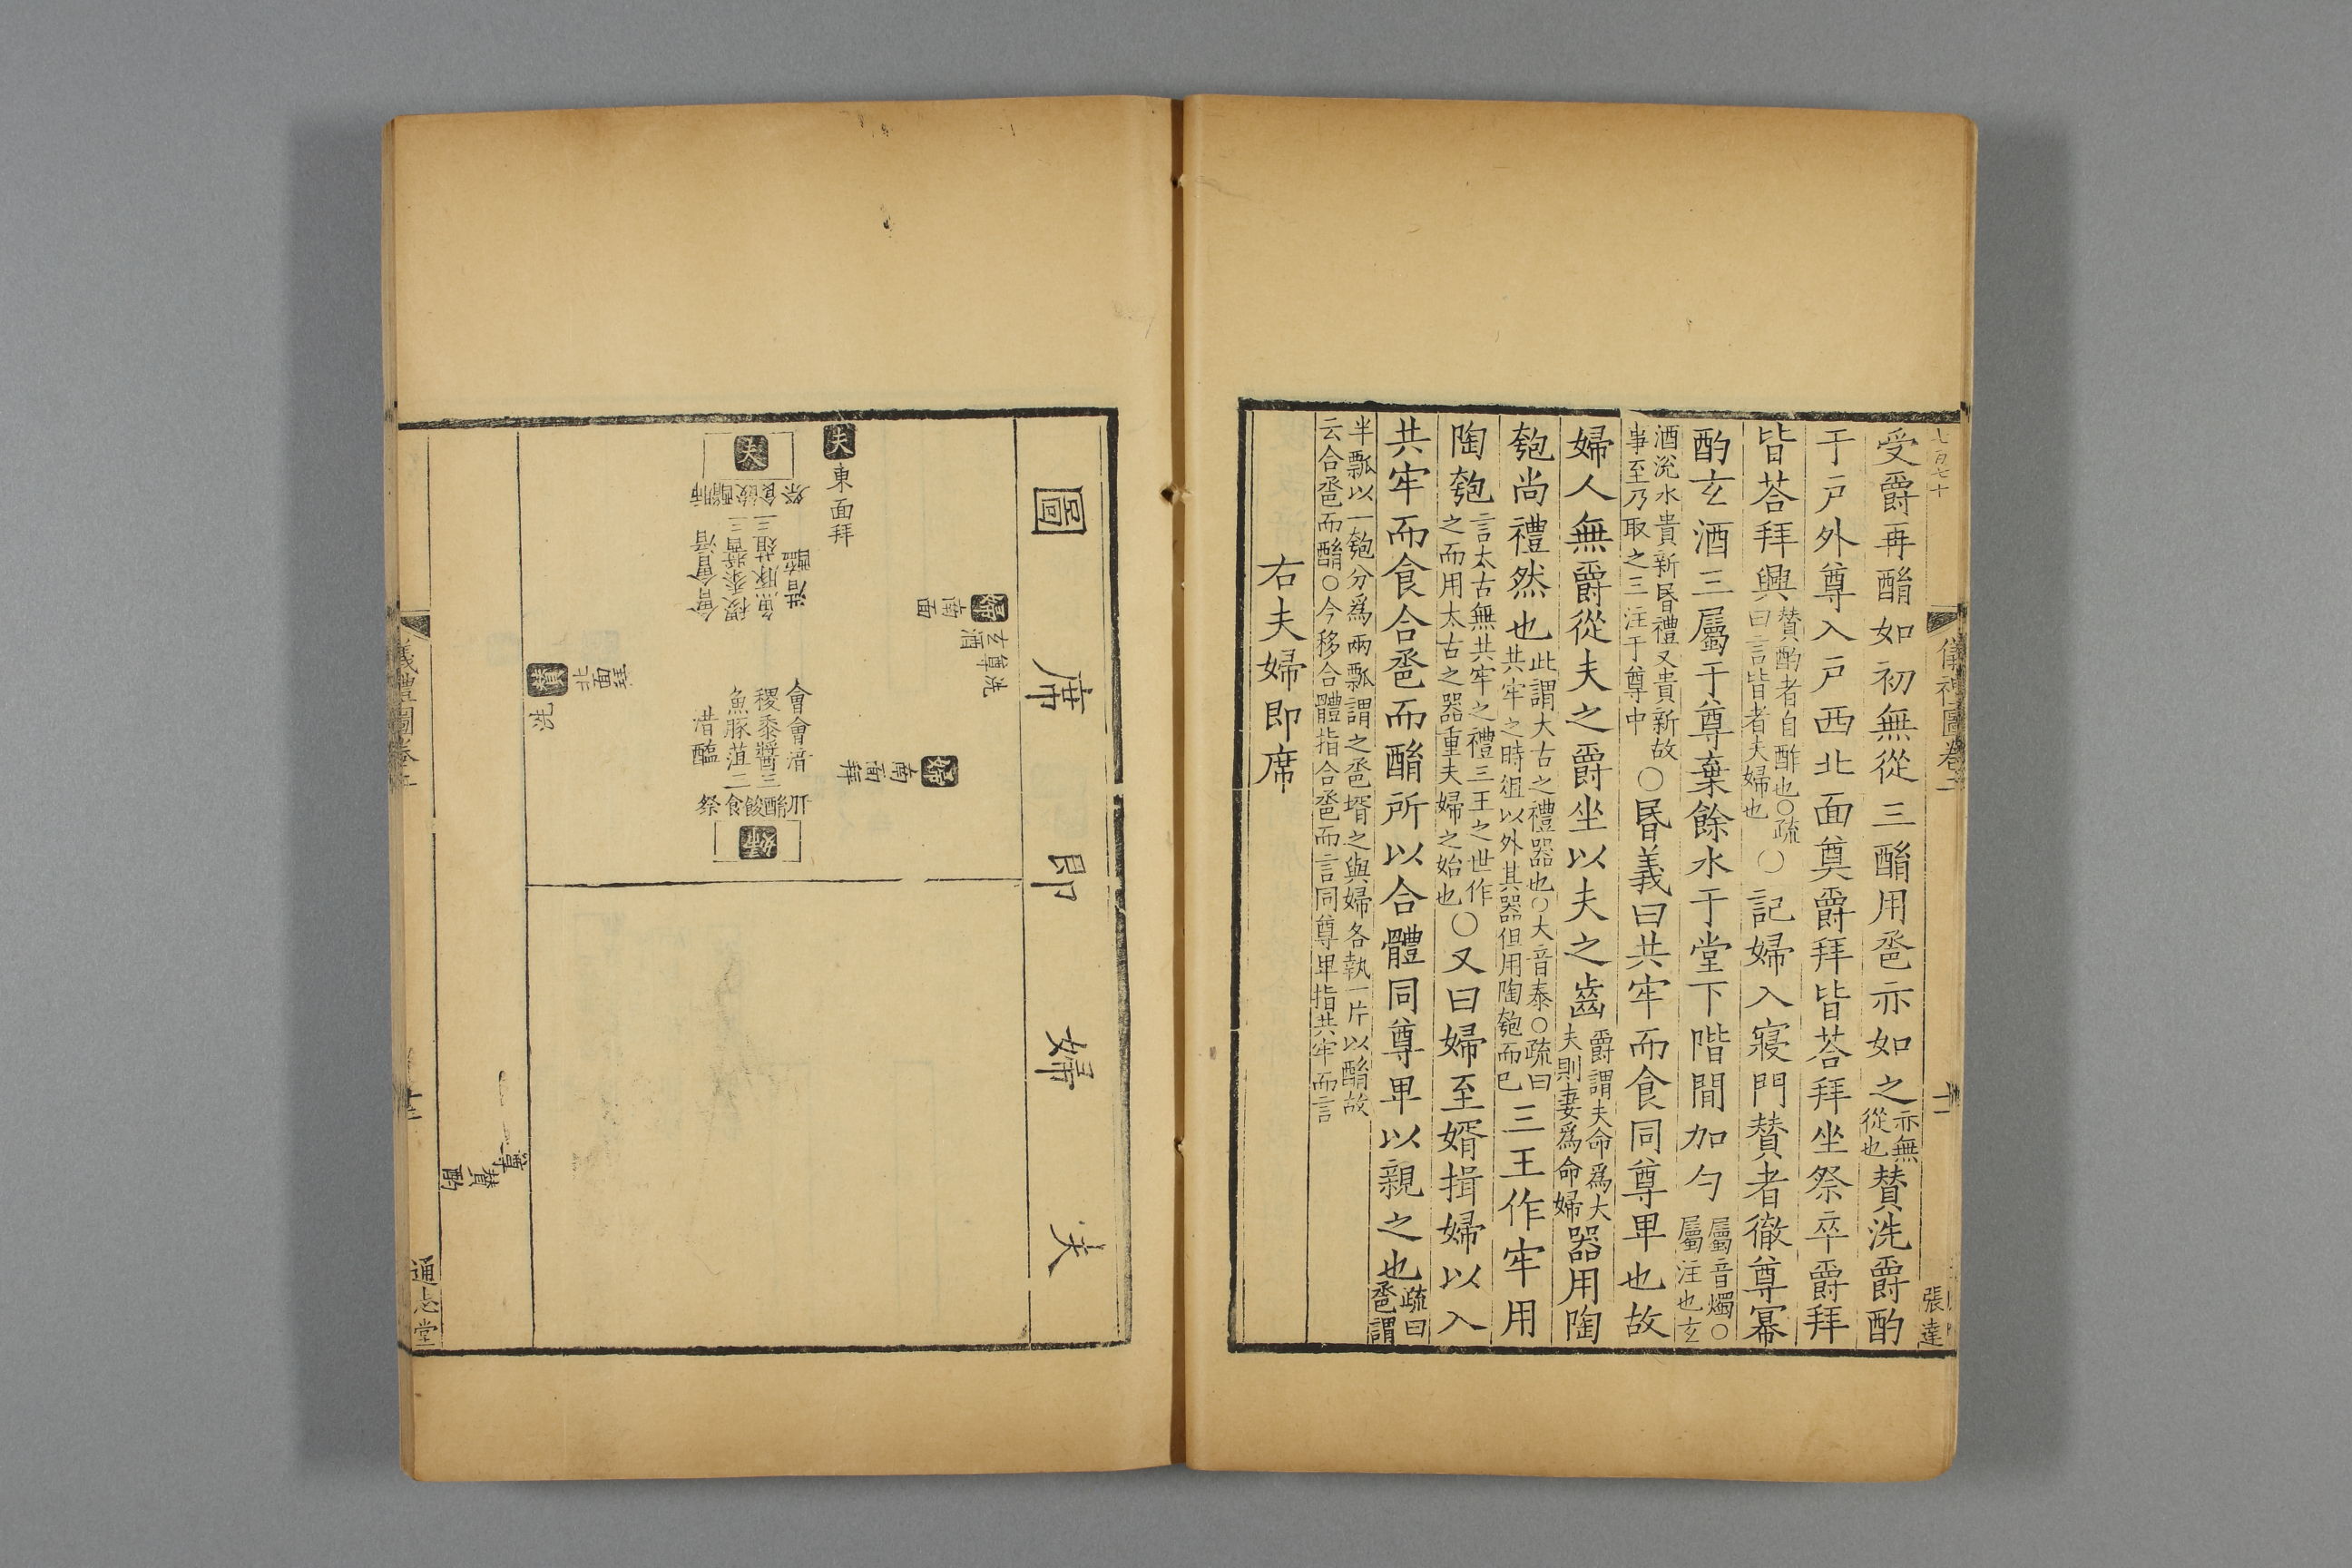 受爵再酳如初無從三酳用卺亦如之亦無從也贊洗爵酌
于戸外尊入戸西北面奠爵拜皆荅拜坐祭卒爵拜
皆荅拜興贊酌者自酢也○疏曰言皆者夫婦也○記婦入寢門贊者徹尊冪
酌玄酒三屬于尊棄餘水于堂下階間加勺屬音燭○屬注也玄
酒涚水貴新昏禮又貴新故事至乃取之三注于尊中○昏義曰共牢而食同尊卑也故
婦人無爵從夫之爵坐以夫之齒爵謂夫命爲大夫則妻爲命婦器用陶
匏尚禮然也此謂大古之禮器也○大音泰○疏曰共牢之時俎以外其器但用陶匏而已三王作牢用
陶匏言太古無共牢之禮三王之世作之而用太古之器重夫婦之始也○又曰婦至壻揖婦以入
共牢而食合卺而酳所以合體同尊卑以親之也疏曰卺謂
半瓢以一匏分爲兩瓢謂之卺壻之與婦各執一片以酳故云合卺而酳○今移合體指合卺而言同尊卑指共牢而言
右夫婦即席
儀禮圖卷二
十一
張達
夫婦即席圖
夫東面拜
夫
祭食餕酳肝
會會湆
稷黍醬三
魚豚菹二
湆醢
婦南面
玄酒
尊
洗
婦南面拜
會會湆
稷黍醬三
魚豚菹二
湆醢
祭食餕酳肝
婦
贊北面
洗
尊
贊酌
儀禮圖卷二
通志堂